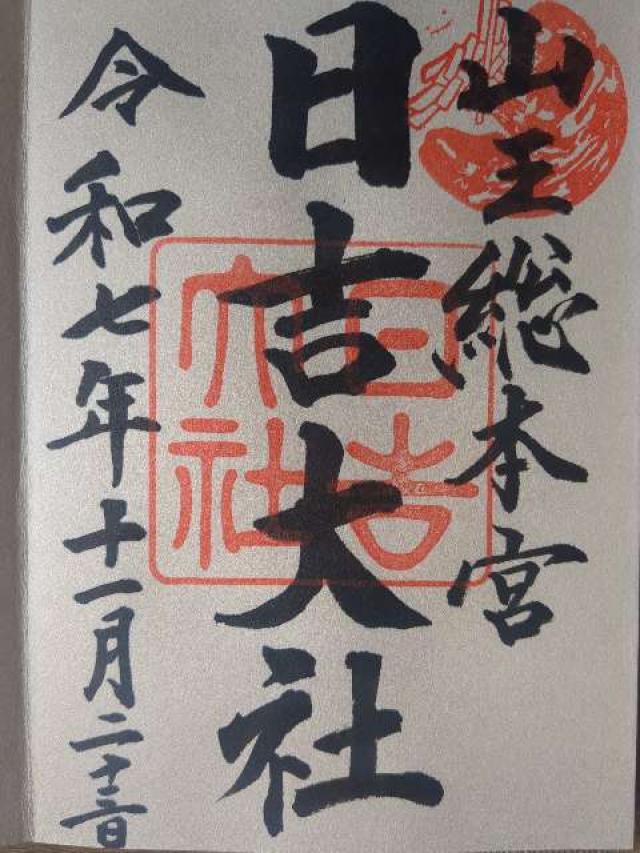 山王総本宮
日吉大社
日吉大社
令和七年十一月二十三日